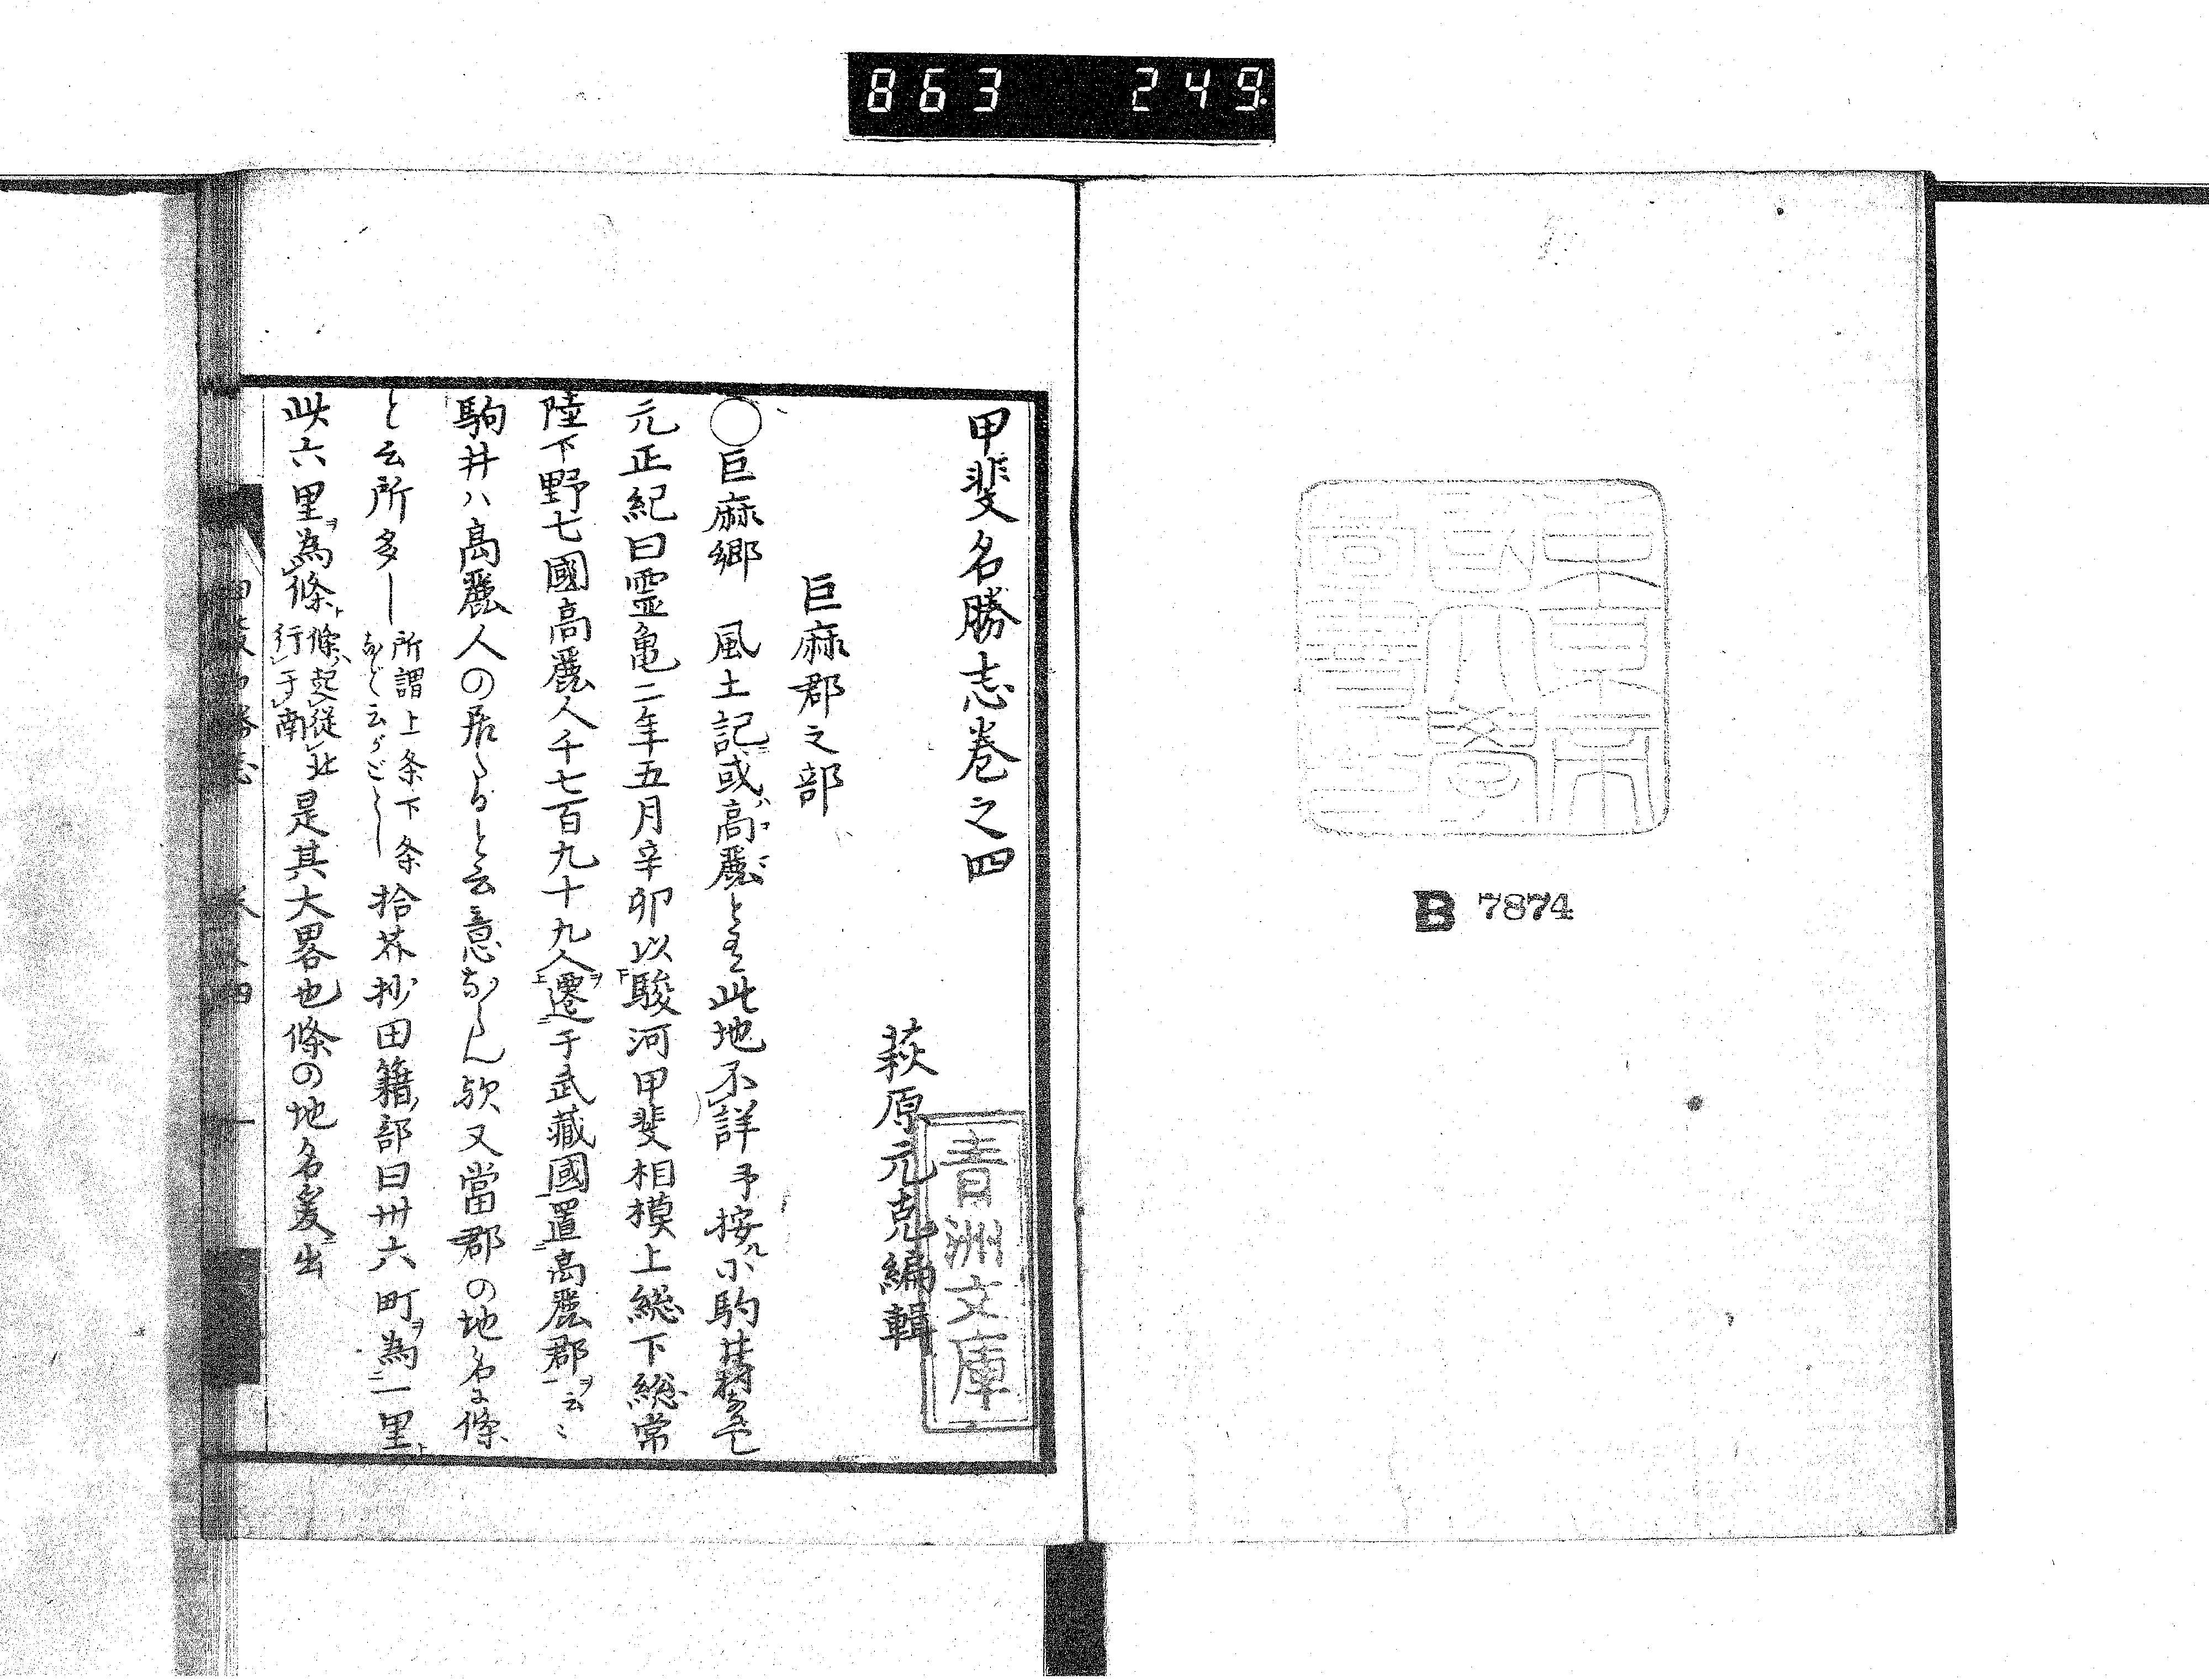 863 249.
東京帝
國大學
圖書印
B 7874
甲斐名勝志巻之四
萩原元克編輯
青洲文庫
巨麻郡之部
○巨麻郷 風土記或高麗と有此地不詳予按ルニ小駒井村
元正紀曰霊亀二年五月辛卯以駿河甲斐相模上総下総常
陸下野七國高麗人千七百九十九人ヲ遷于武藏國置高麗郡ヲ云〻
駒井ハ高麗人の居たると云意ならん欤又當郡の地名に條
と云所多し
所謂上条下条
など云がごとし
拾芥抄田籍部曰卅六町ヲ為一里ト
此六里ヲ為條ト
條ハ起従北
行于南
是其大畧也條の地名爰ニ出